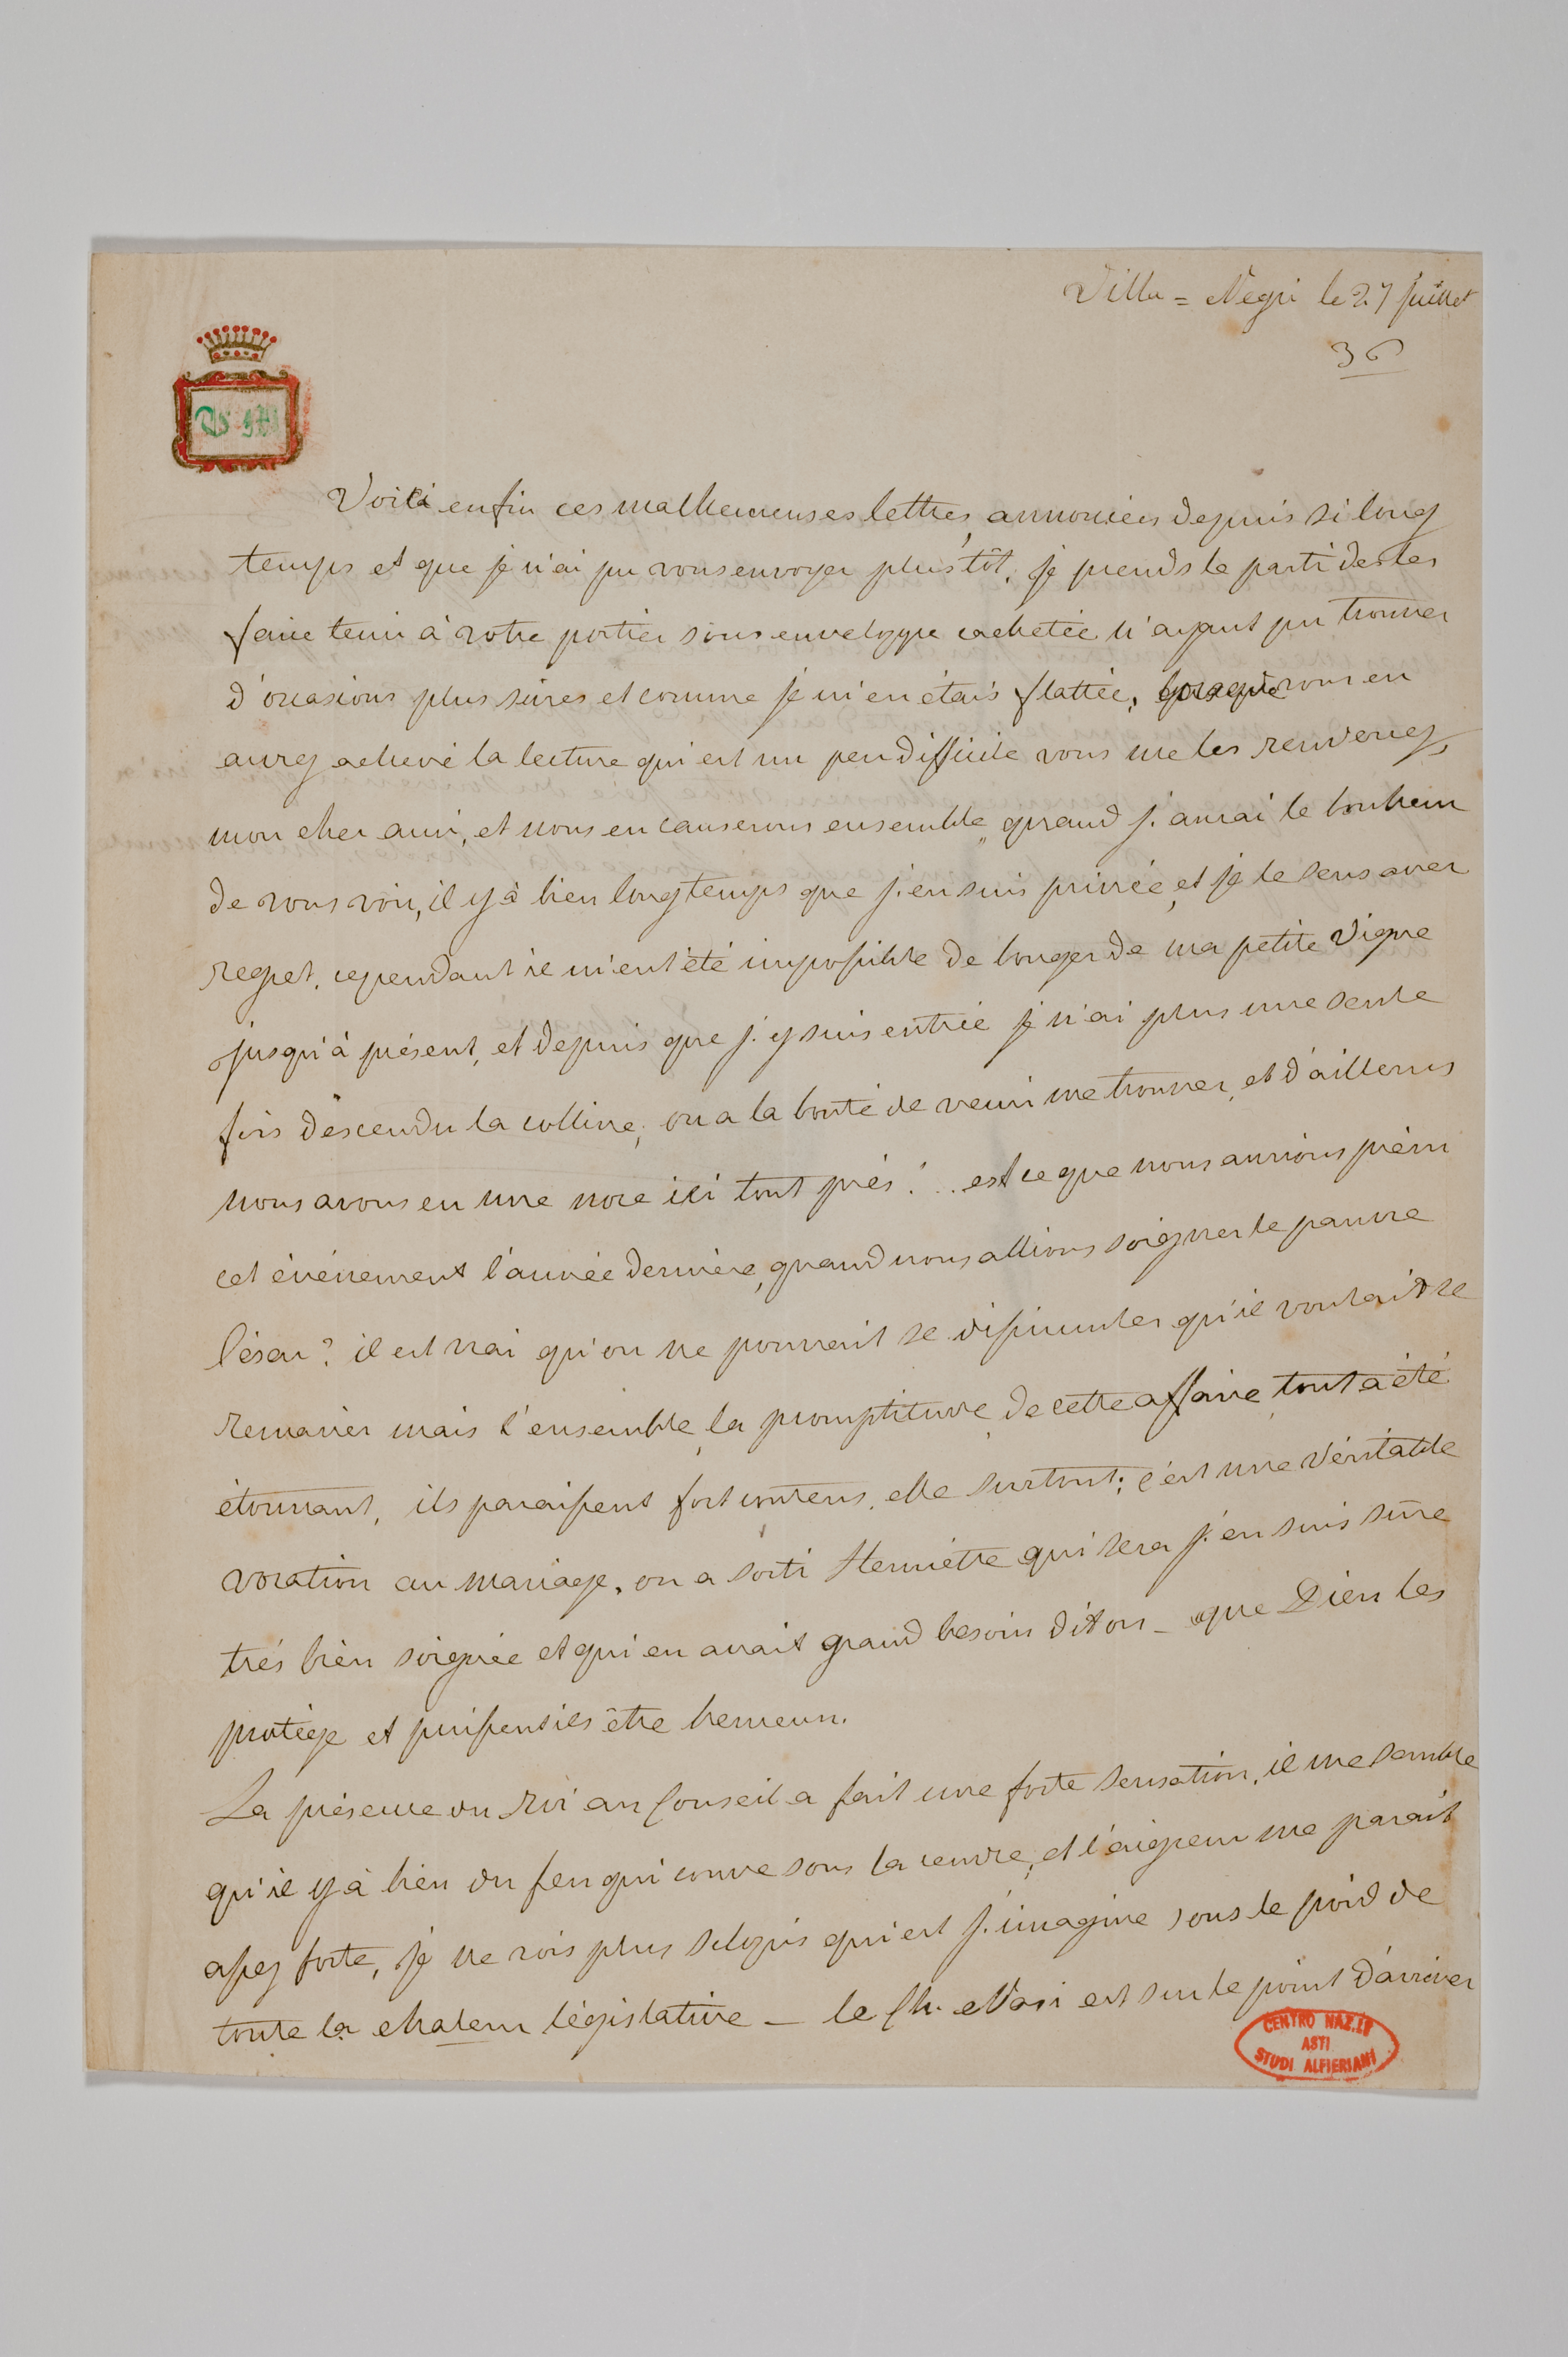 Villa = Negri le 27 juillet
36
Voila enfin ces malheureuses lettres, annoncées depuis si long
temps et que je n'ai pu vous envoyer plus tôt, je prends le parti de les
faire tenir à votre portier sous enveloppe cachetée n'ayant pu trouver
d'occasions plus sûres et comme je m'en étais flattée, lorsque vous en
aurez achevé la lecture qui est un peu difficile vous me les renverrez,
mon cher ami, et nous en causerons ensemble, quand j'aurai le bonheur
de vous voir, il y à bien longtemps que j'en suis privée, et je le sens avec
regret, cependant il m'eut été impossible de bouger de ma petite Vigne
jusqu'à présent, et depuis que j'y suis entrée je n'ai plus une seule
fois descendu la colline, on a la bonté de venir me trouver, et d'ailleurs
nous avons eu une noce ici tout près!.. est ce que nous aurions prévu
cet événement l'année dernière, quand nous allions soigner le pauvre
César? il est vrai qu'on ne pouvait se dissimuler qu'il voulait se
remarier mais l'ensemble, la promptitude, de cette affaire, tout a été
étonnant, ils paraissent fort contens, elle surtout; c'est une véritable
vocation au mariage, on a sorti Henriette qui sera j'en suis sûre
très bien soignée et qui en avait grand besoin dit on _ que Dieu les
protège et puissent ils être heureux.
La présence du Roi au Conseil a fait une forte sensation, il me semble
qu'il y à bien du feu qui couve sous la cendre, et l'aigreur me parait
assez forte, je ne vois plus Sclopis qui est j'imagine sous le poid de
toute la chaleur législative _ le Ch. Nasi est sur le point d'arriver
CENTRO NAZ.LE
ASTI
STUDI ALFIERIANI